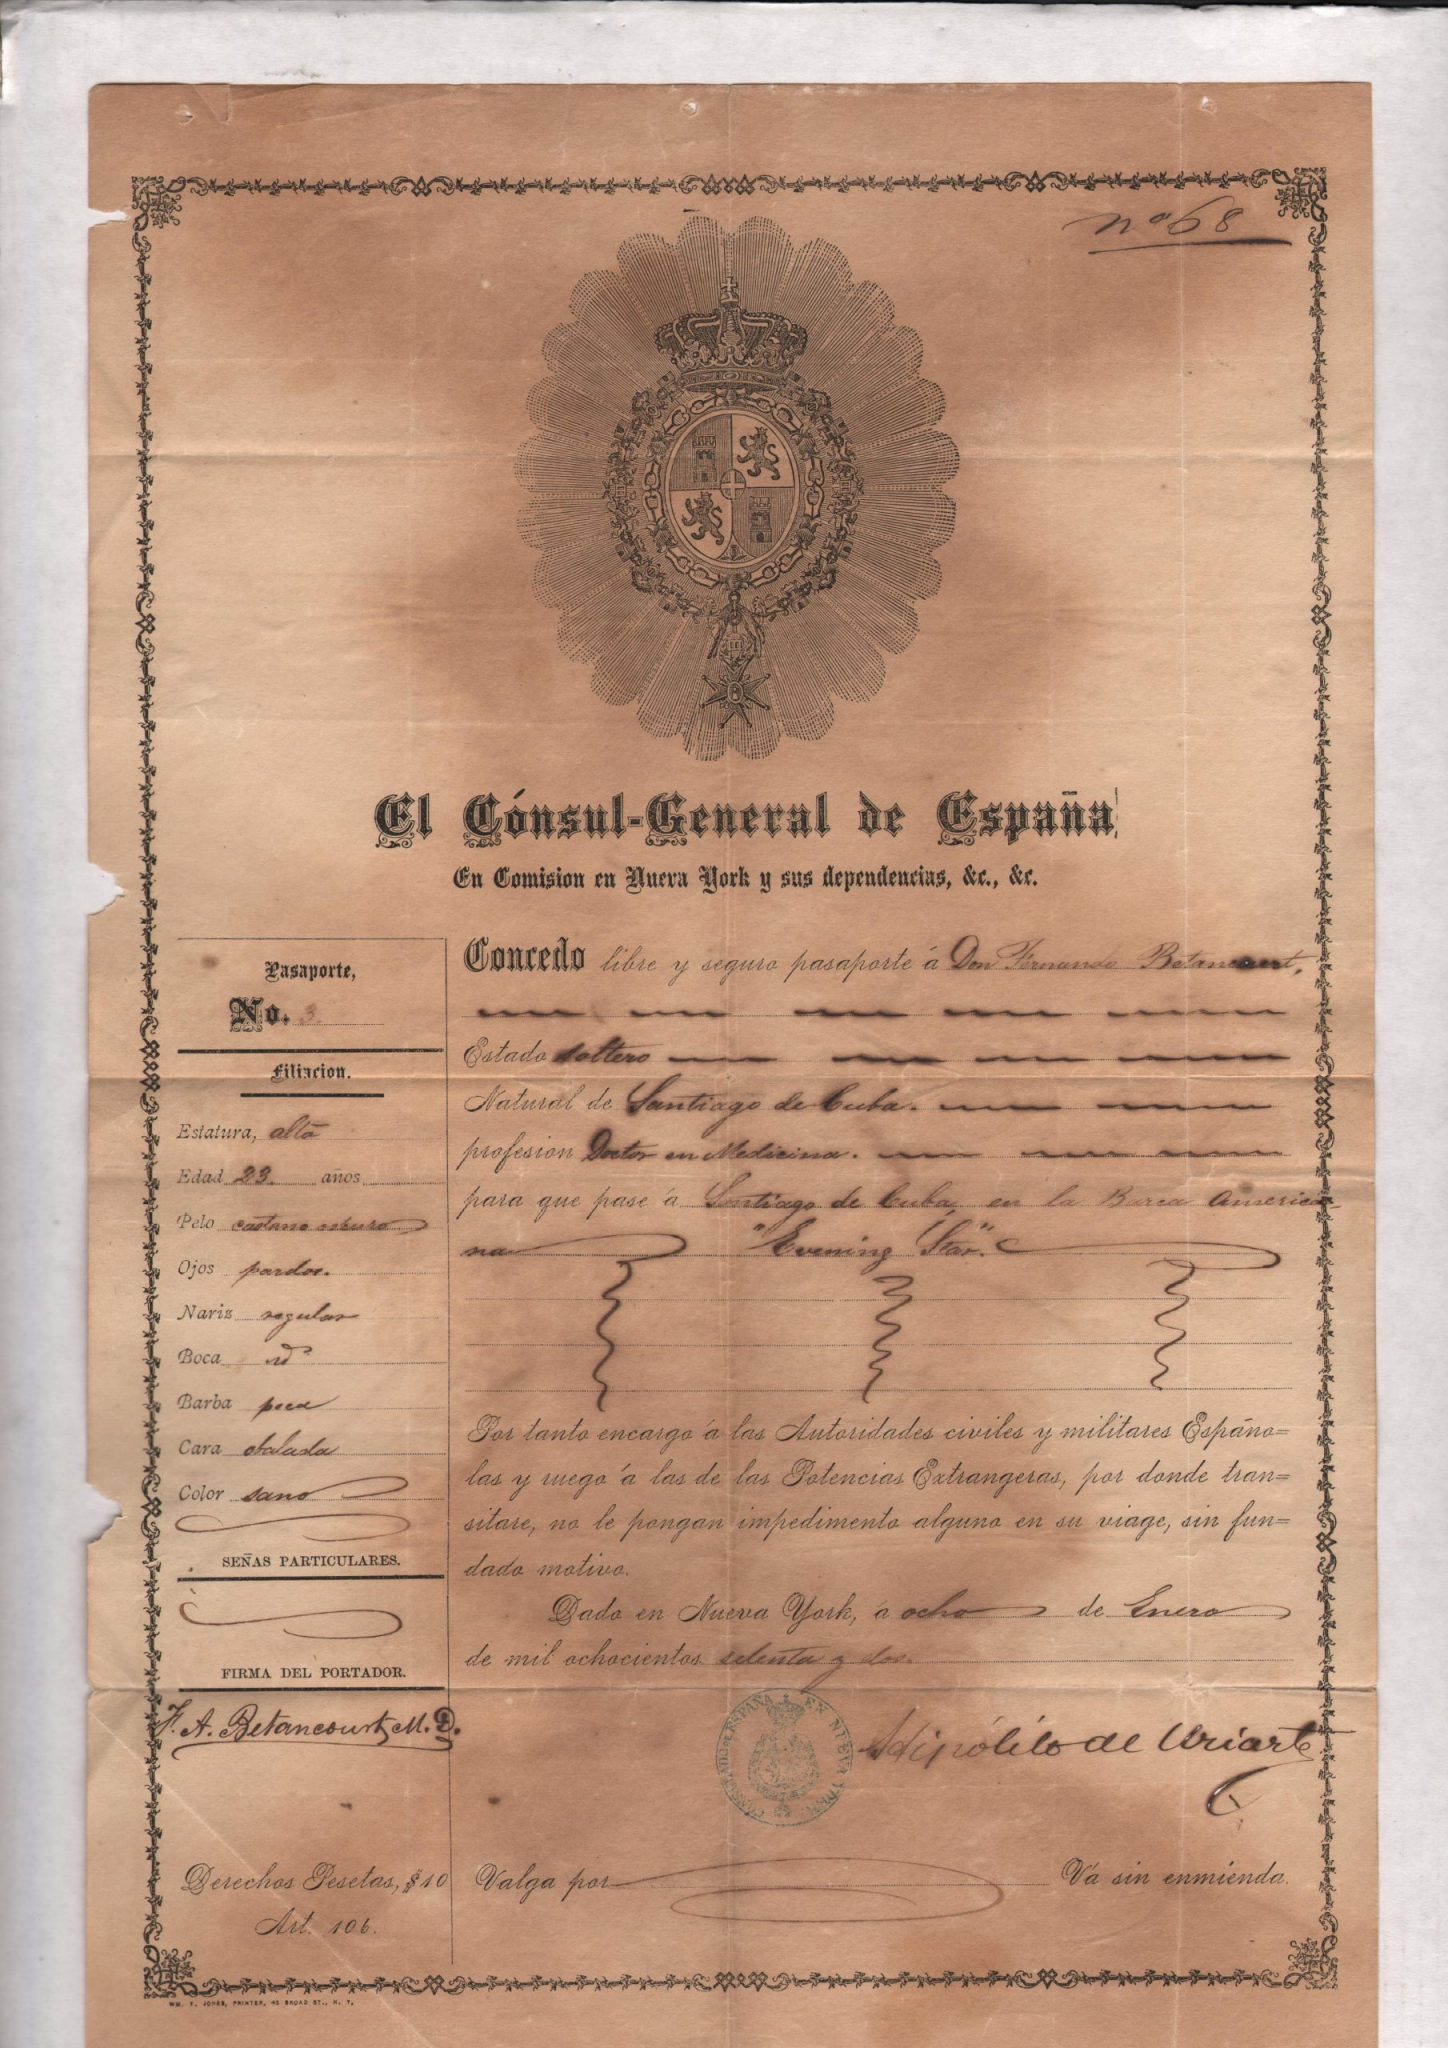 nº 68
El Cónsul-General de España
En Comision en Nueva York y sus dependencias, &c., &c.
Pasaporte,
No. 3.
Filiacion.
Estatura, alta
Edad 23. años
Pelo castano oscuro
Ojos pardos.
Nariz regular
Boca id
Barba poca
Cara obalada
Color sano
SEÑAS PARTICULARES.
FIRMA DEL PORTADOR.
F. A. Betancourt, M. D.
Derechos Pesetas, $10
Art. 106.
Concedo libre y seguro pasaporte á Don Fernando Betancourt,
Estado soltero
Natural de Santiago de Cuba.
profesion Doctor en Medicina.
para que pase á Santiago de Cuba, en la Barca America-
na "Evening Star".
Por tanto encargo á las Autoridades civiles y militares Españo=
las y ruego á las de las Potencias Extrangeras, por donde tran=
sitare, no le pongan impedimento alguno en su viage, sin fun=
dado motivo.
Dado en Nueva York, á ocho de Enero
de mil ochocientos setenta y dos.
CONSULADO DE ESPAÑA EN NUEVA YORK
Hipólito de Uriarte
Valga por
Vá sin enmienda.
WM. F. JONES, PRINTER, 45 BROAD ST., N. Y.